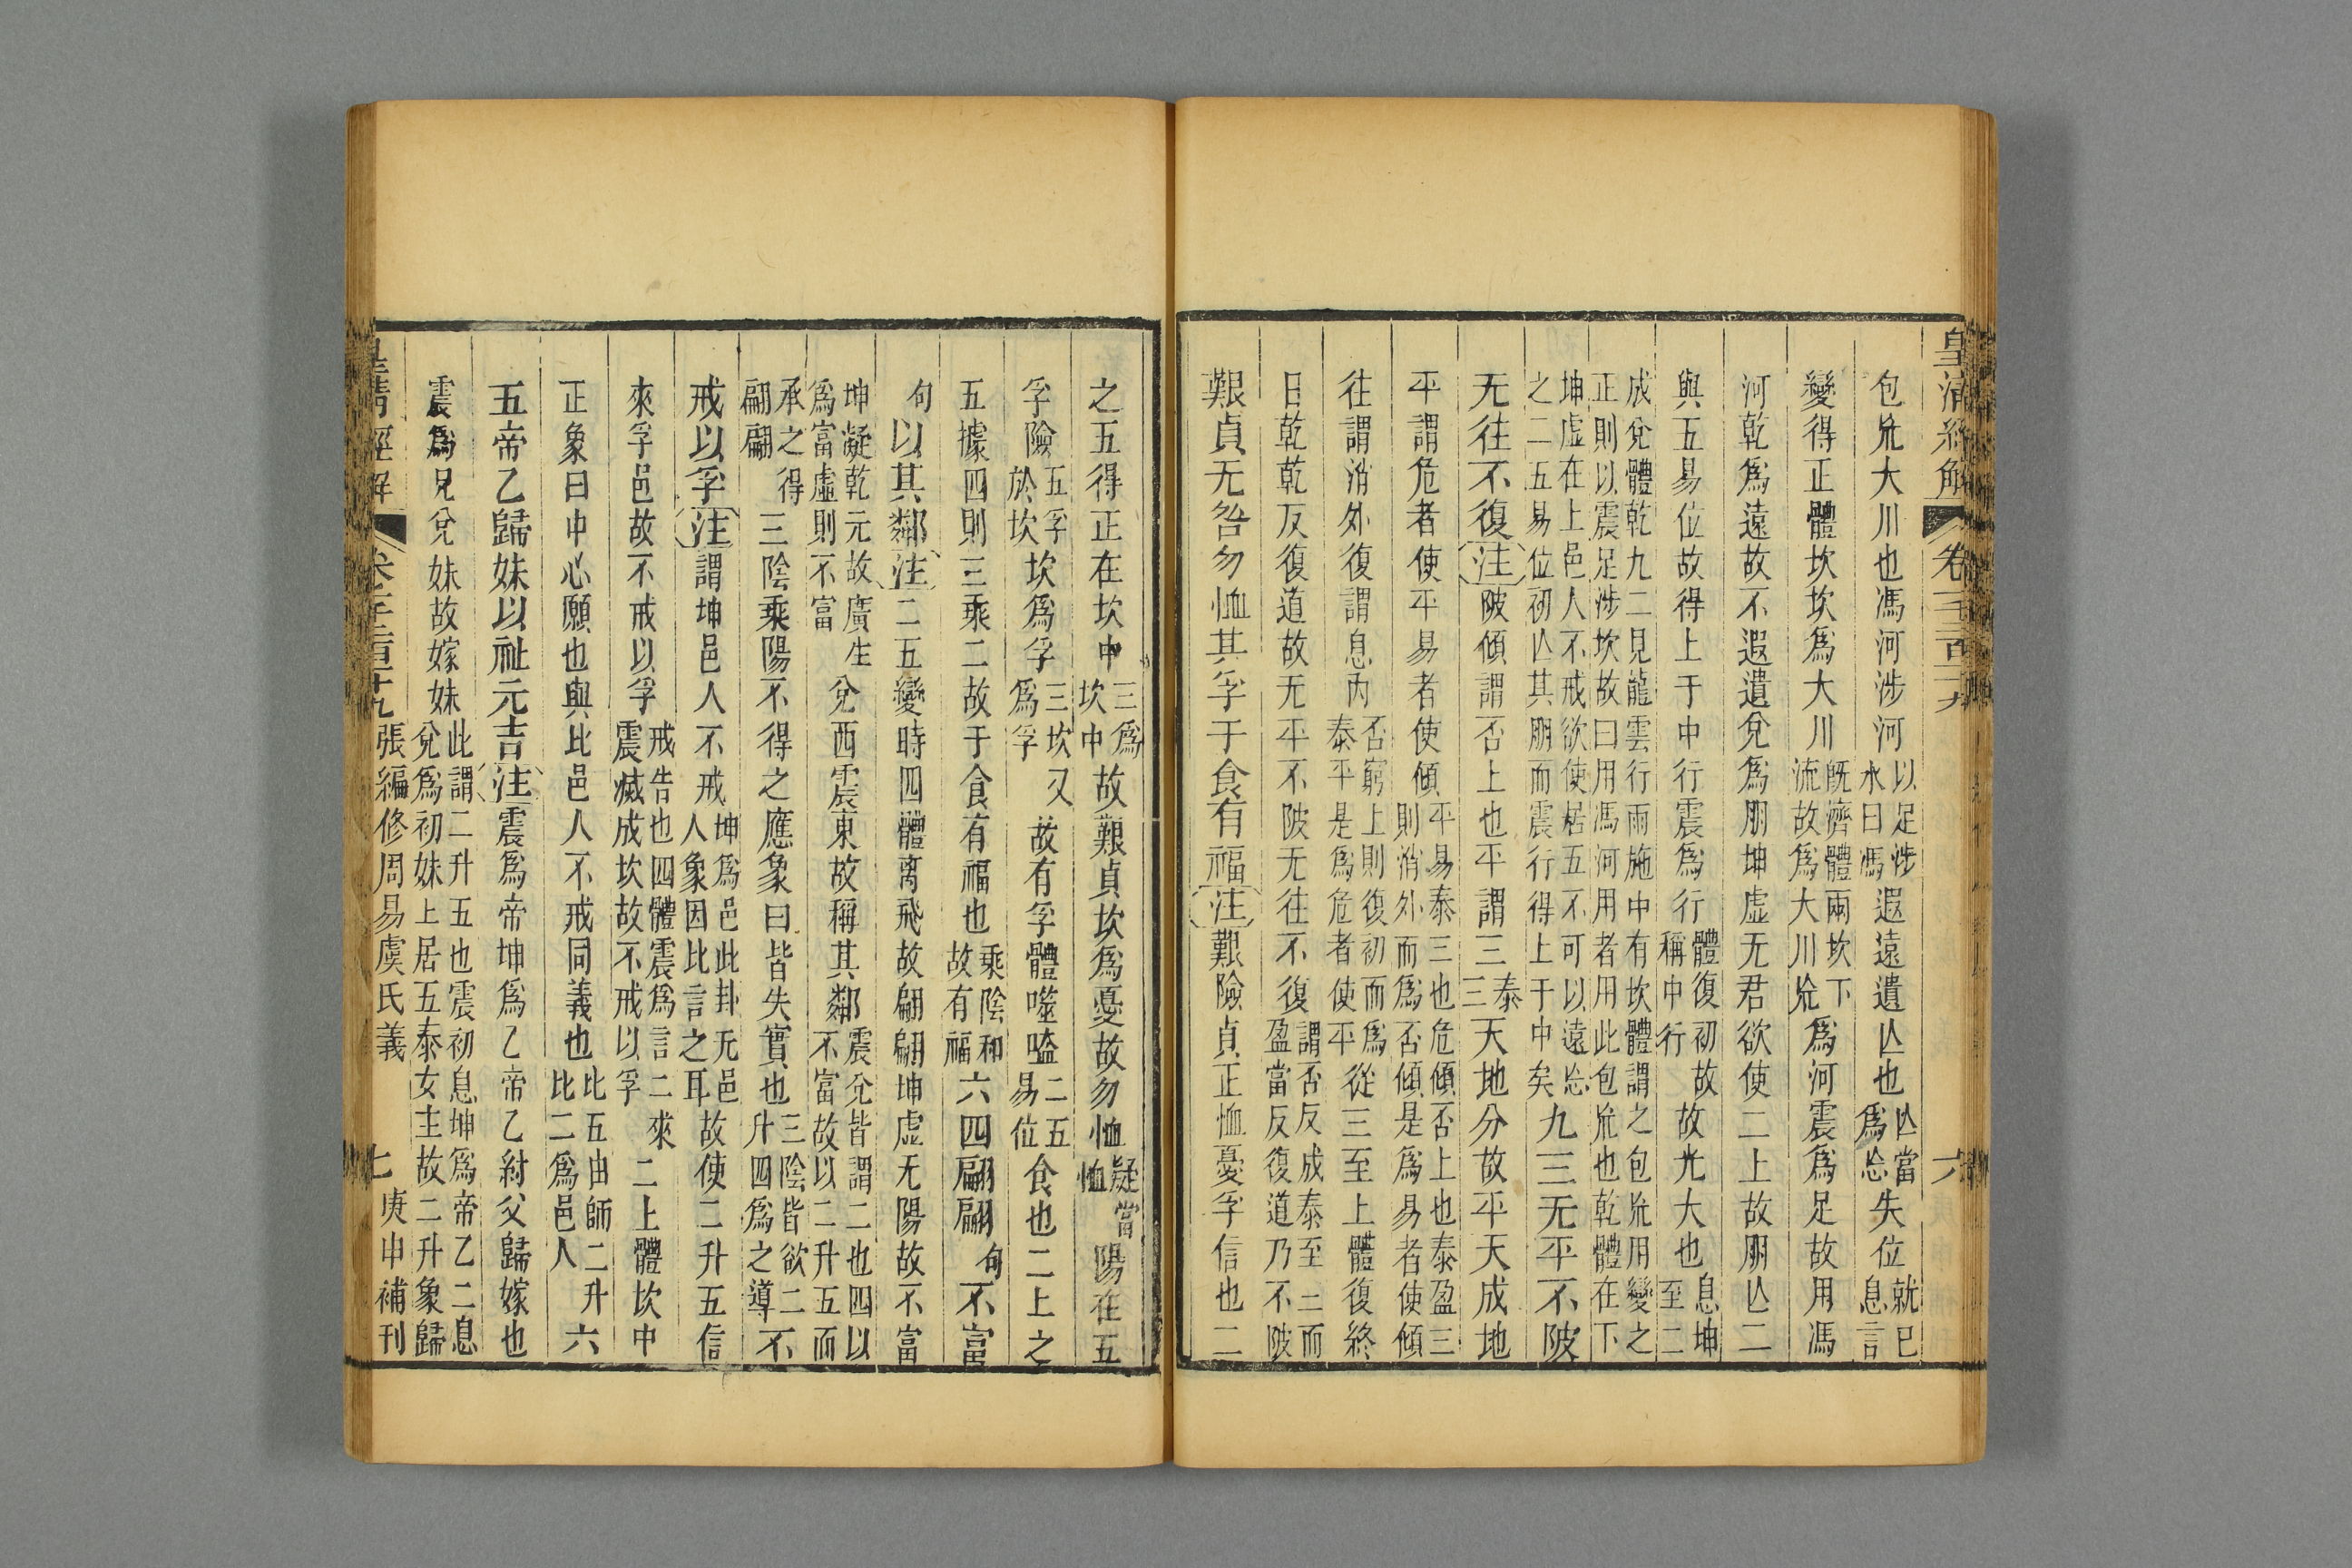 皇清經解 卷一千二百十九 六
包巟大川也馮河涉河以足涉水曰馮遐遠遺亾也亾當爲忘失位就已息言
變得正體坎坎爲大川旣濟體兩坎下流故爲大川巟爲河震爲足故用馮
河乾爲遠故不遐遺兌爲朋坤虛无君欲使二上故朋亾二
與五易位故得上于中行震爲行體復初故稱中行故光大也息坤至二
成兌體乾九二見龍雲行雨施中有坎體謂之包巟用變之正則以震足涉坎故曰用馮河用者用此包巟也乾體在下
坤虛在上邑人不戒欲使居五不可以遠忘之二五易位初亾其朋而震行得上于中矣九三无平不陂
无往不復注陂傾謂否上也平謂三泰三天地分故平天成地
平謂危者使平易者使傾平易泰三也危傾否上也泰盈三則消外而爲否傾是爲易者使傾
往謂消外復謂息內否窮上則復初而爲泰平是爲危者使平從三至上體復終
日乾乾反復道故无平不陂无往不復謂否反成泰至三而盈當反復道乃不陂
艱貞无咎勿恤其孚于食有福注艱險貞正恤憂孚信也二
之五得正在坎中三爲坎中故艱貞坎爲憂故勿恤凝當恤陽在五
孚險五孚於坎坎爲孚三坎又爲孚故有孚體噬嗑二五易位食也二上之
五據四則三乘二故于食有福也乘陰和故有福六四翩翩句不富
句以其鄰注二五變時四體离飛故翩翩坤虛无陽故不富
坤凝乾元故廣生爲富虛則不富兌西震東故稱其鄰震兌皆謂二也四以不富故以二升五而
承之得翩翩三陰乘陽不得之應象曰皆失實也三陰皆欲二升四爲之導不
戒以孚注謂坤邑人不戒坤爲邑此卦无邑人象因比言之耳故使二升五信
來孚邑故不戒以孚戒告也四體震爲言二來震滅成坎故不戒以孚二上體坎中
正象曰中心願也與比邑人不戒同義也比五由師二升比二爲邑人六
五帝乙歸妹以祉元吉注震爲帝坤爲乙帝乙紂父歸嫁也
震爲兄兌妹故嫁妹此謂二升五也震初息坤爲帝乙二息兌爲初妹上居五泰女主故二升象歸
皇清經解 卷一千二百十九 張編修周易虞氏義 七 庚申補刊